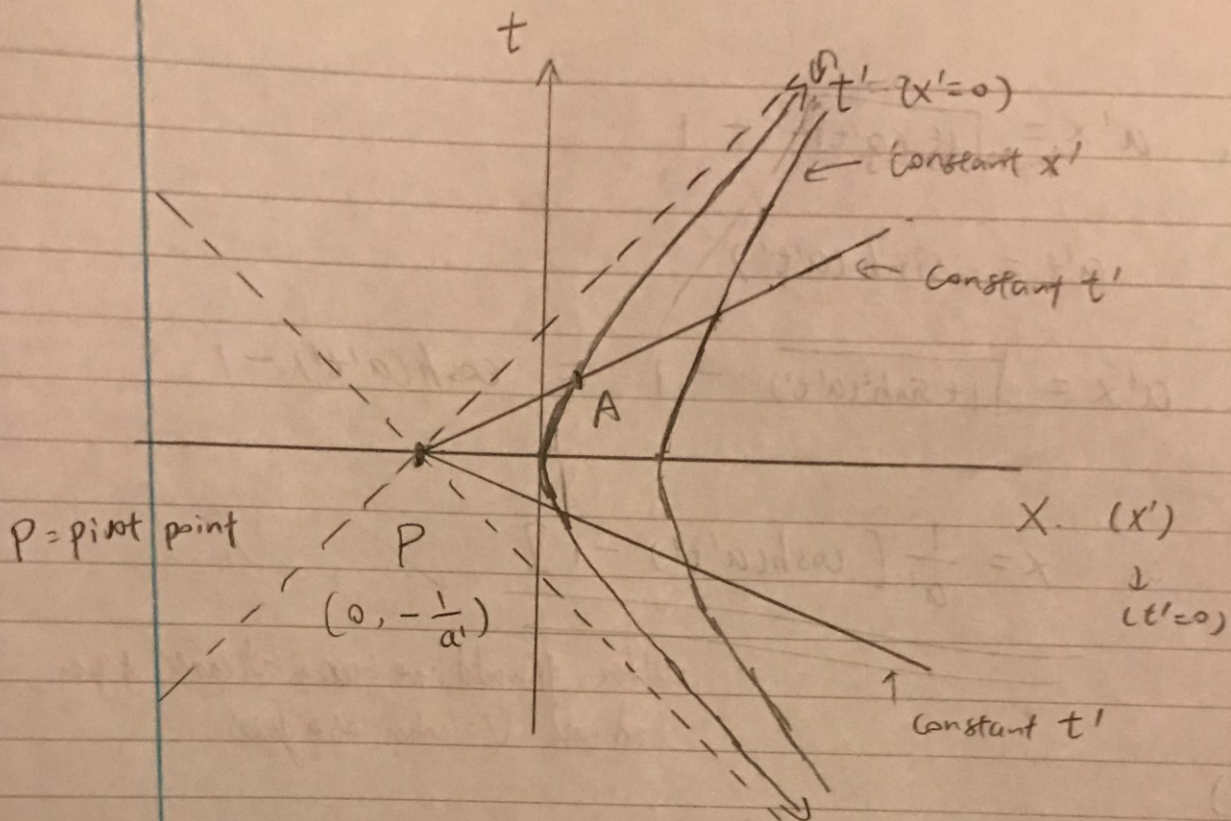 t
t' (x'=0)
← constant x'
← constant t'
A
X. (x')
↓
(t'=0)
P = pivot point
P
(0, -1/a')
↑
constant t'